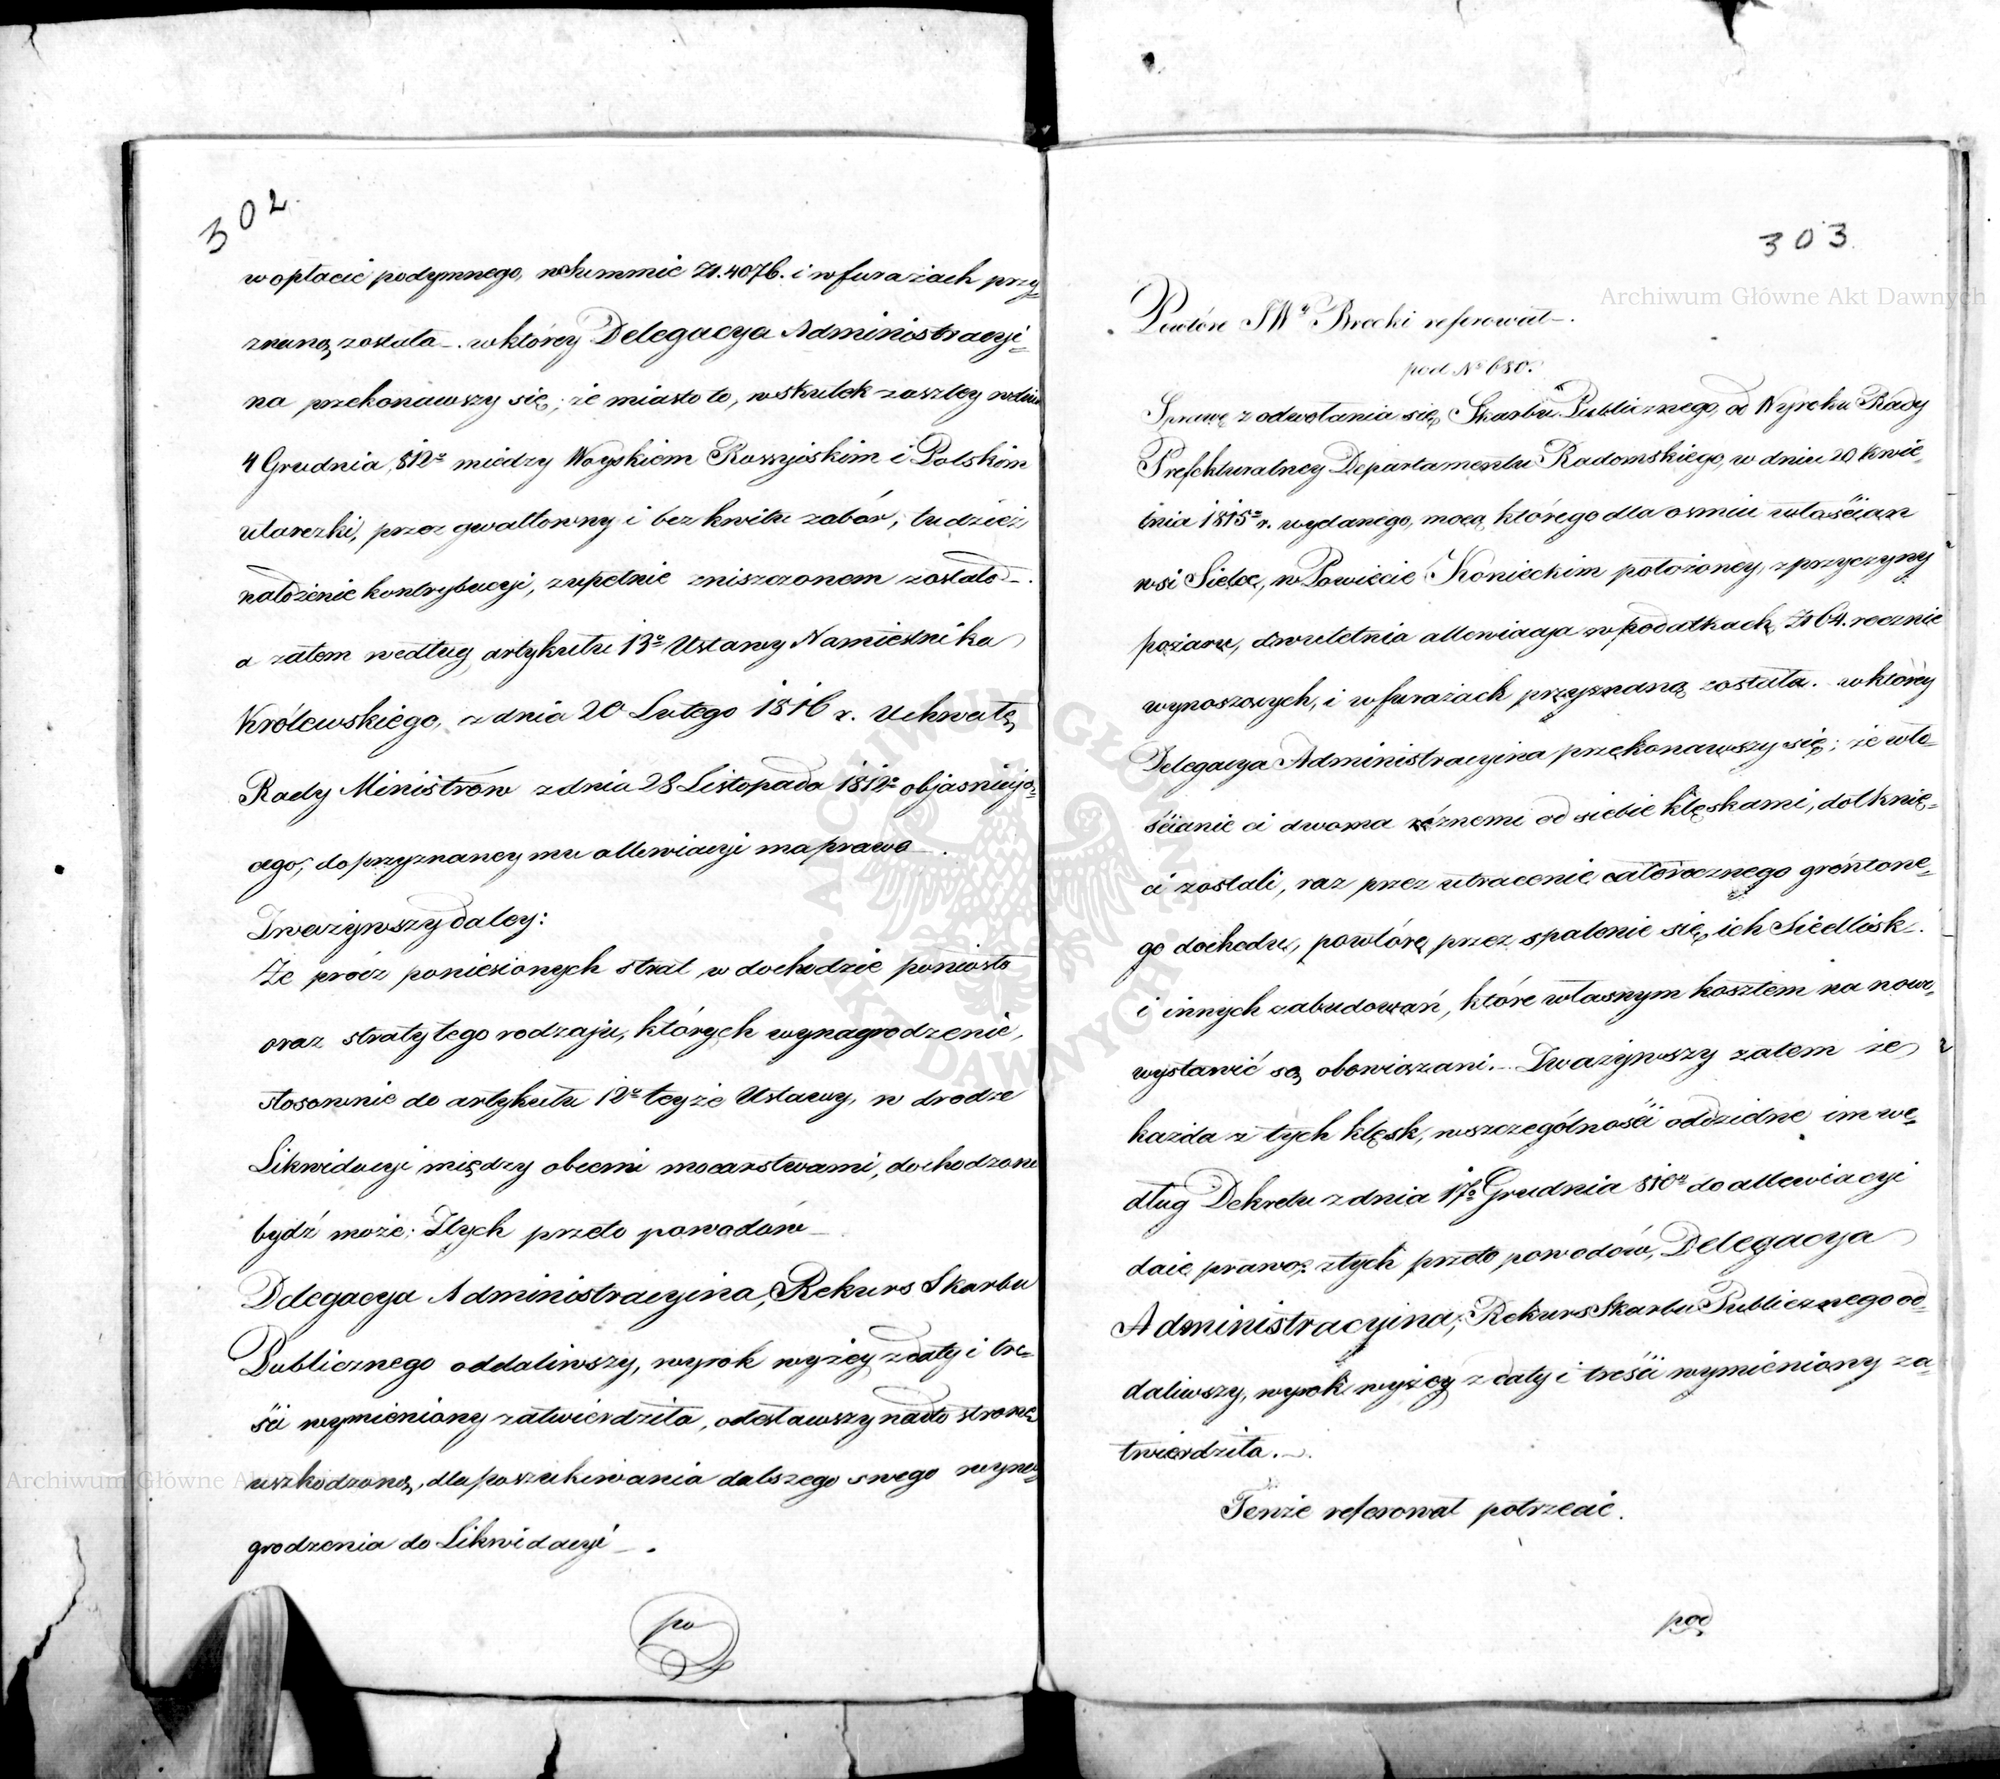 302.
w opłacie podymnego, w summie Zł. 4076. i w furażach przy-
znaną została. w którey Delegacya Administracyi-
na przekonawszy się; że miasto to, w skutek zaszłey w dniu
4 Grudnia 812º między Woyskiem Rossyiskim i Polskim
utarczki, przez gwałtowny i bez kwitu zabór, tudzież
nałożenie kontrybucyi, zupełnie zniszczonem zostało.
a zatem według artykułu 13º Ustawy Namiestnika
Królewskiego, z dnia 20 Lutego 1816 r. Uchwałę
Rady Ministrów z dnia 28 Listopada 1812º objaśniają-
cego, do przyznaney mu allewiacyi ma prawo.
Zważywszy daley:
Że prócz poniesionych strat w dochodzie poniosło
oraz straty tego rodzaju, których wynagrodzenie,
stosownie do artykułu 12º teyże Ustawy, w drodze
Likwidacyi między obcemi mocarstwami, dochodzone
bydź może; Z tych przeto powodów
Delegacya Administracyina, Rekurs Skarbu
Publicznego oddaliwszy, wyrok wyżey z daty i tre-
ści wymieniony zatwierdziła, odesławszy nadto stronę
uszkodzoną, dla poszukiwania dalszego swego wyna-
grodzenia do Likwidacyi.
po
303.
Powtóre JWy Brocki referował.
pod Nº 680.
Sprawę z odwołania się Skarbu Publicznego, od Wyroku Rady
Prefekturalney Departamentu Radomskiego, w dniu 20 Kwie-
tnia 1815º r. wydanego, mocą którego dla ośmiu włościan
wsi Sielce, w Powiecie Konieckim położoney, z przyczyny
pożaru, dwuletnia allewiacya w podatkach Zł 64. rocznie
wynoszących, i w furażach przyznaną została. w którey
Delegacya Administracyina przekonawszy się; że wło-
ścianie ci dwoma różnemi od siebie klęskami, dotknię-
ci zostali, raz przez utracenie całorocznego gróntowe-
go dochodu, powtóre przez spalenie się ich Siedlisk
i innych zabudowań, które własnym kosztem na nowo
wystawić są obowiązani. Zważywszy zatem że
każda z tych klęsk, w szczególności oddzielne im we-
dług Dekretu z dnia 17º Grudnia 810º do allewiacyi
daie prawo; z tych przeto powodów, Delegacya
Administracyina, Rekurs Skarbu Publicznego od-
daliwszy, wyrok wyżey z daty i treści wymieniony za-
twierdziła.
Tenże referował potrzecie.
pod
Archiwum Główne Akt Dawnych
Archiwum Główne Akt
ARCHIWUM GŁÓWNE AKT DAWNYCH